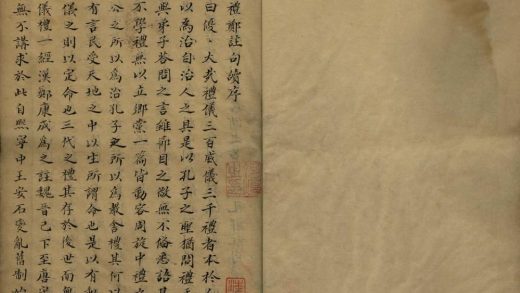 禮鄭註句讀序
曰優〻大哉禮儀三百威儀三千禮者本於人
以為治自治人之具是以孔子之聖猶問禮
與弟子答問之言雖節目之微無不備悉語其
不學禮無以立鄉黨一篇皆動容周旋中禮
公之所以為治孔子之所以為教舍禮其何以
有言民受天地之中以生所謂命也是以有
儀之則以定命也三代之禮其存於後世而無
儀禮一經漢鄭康成為之註魏晉已下至唐
無不講求於此自熙寧中王安石變亂舊制